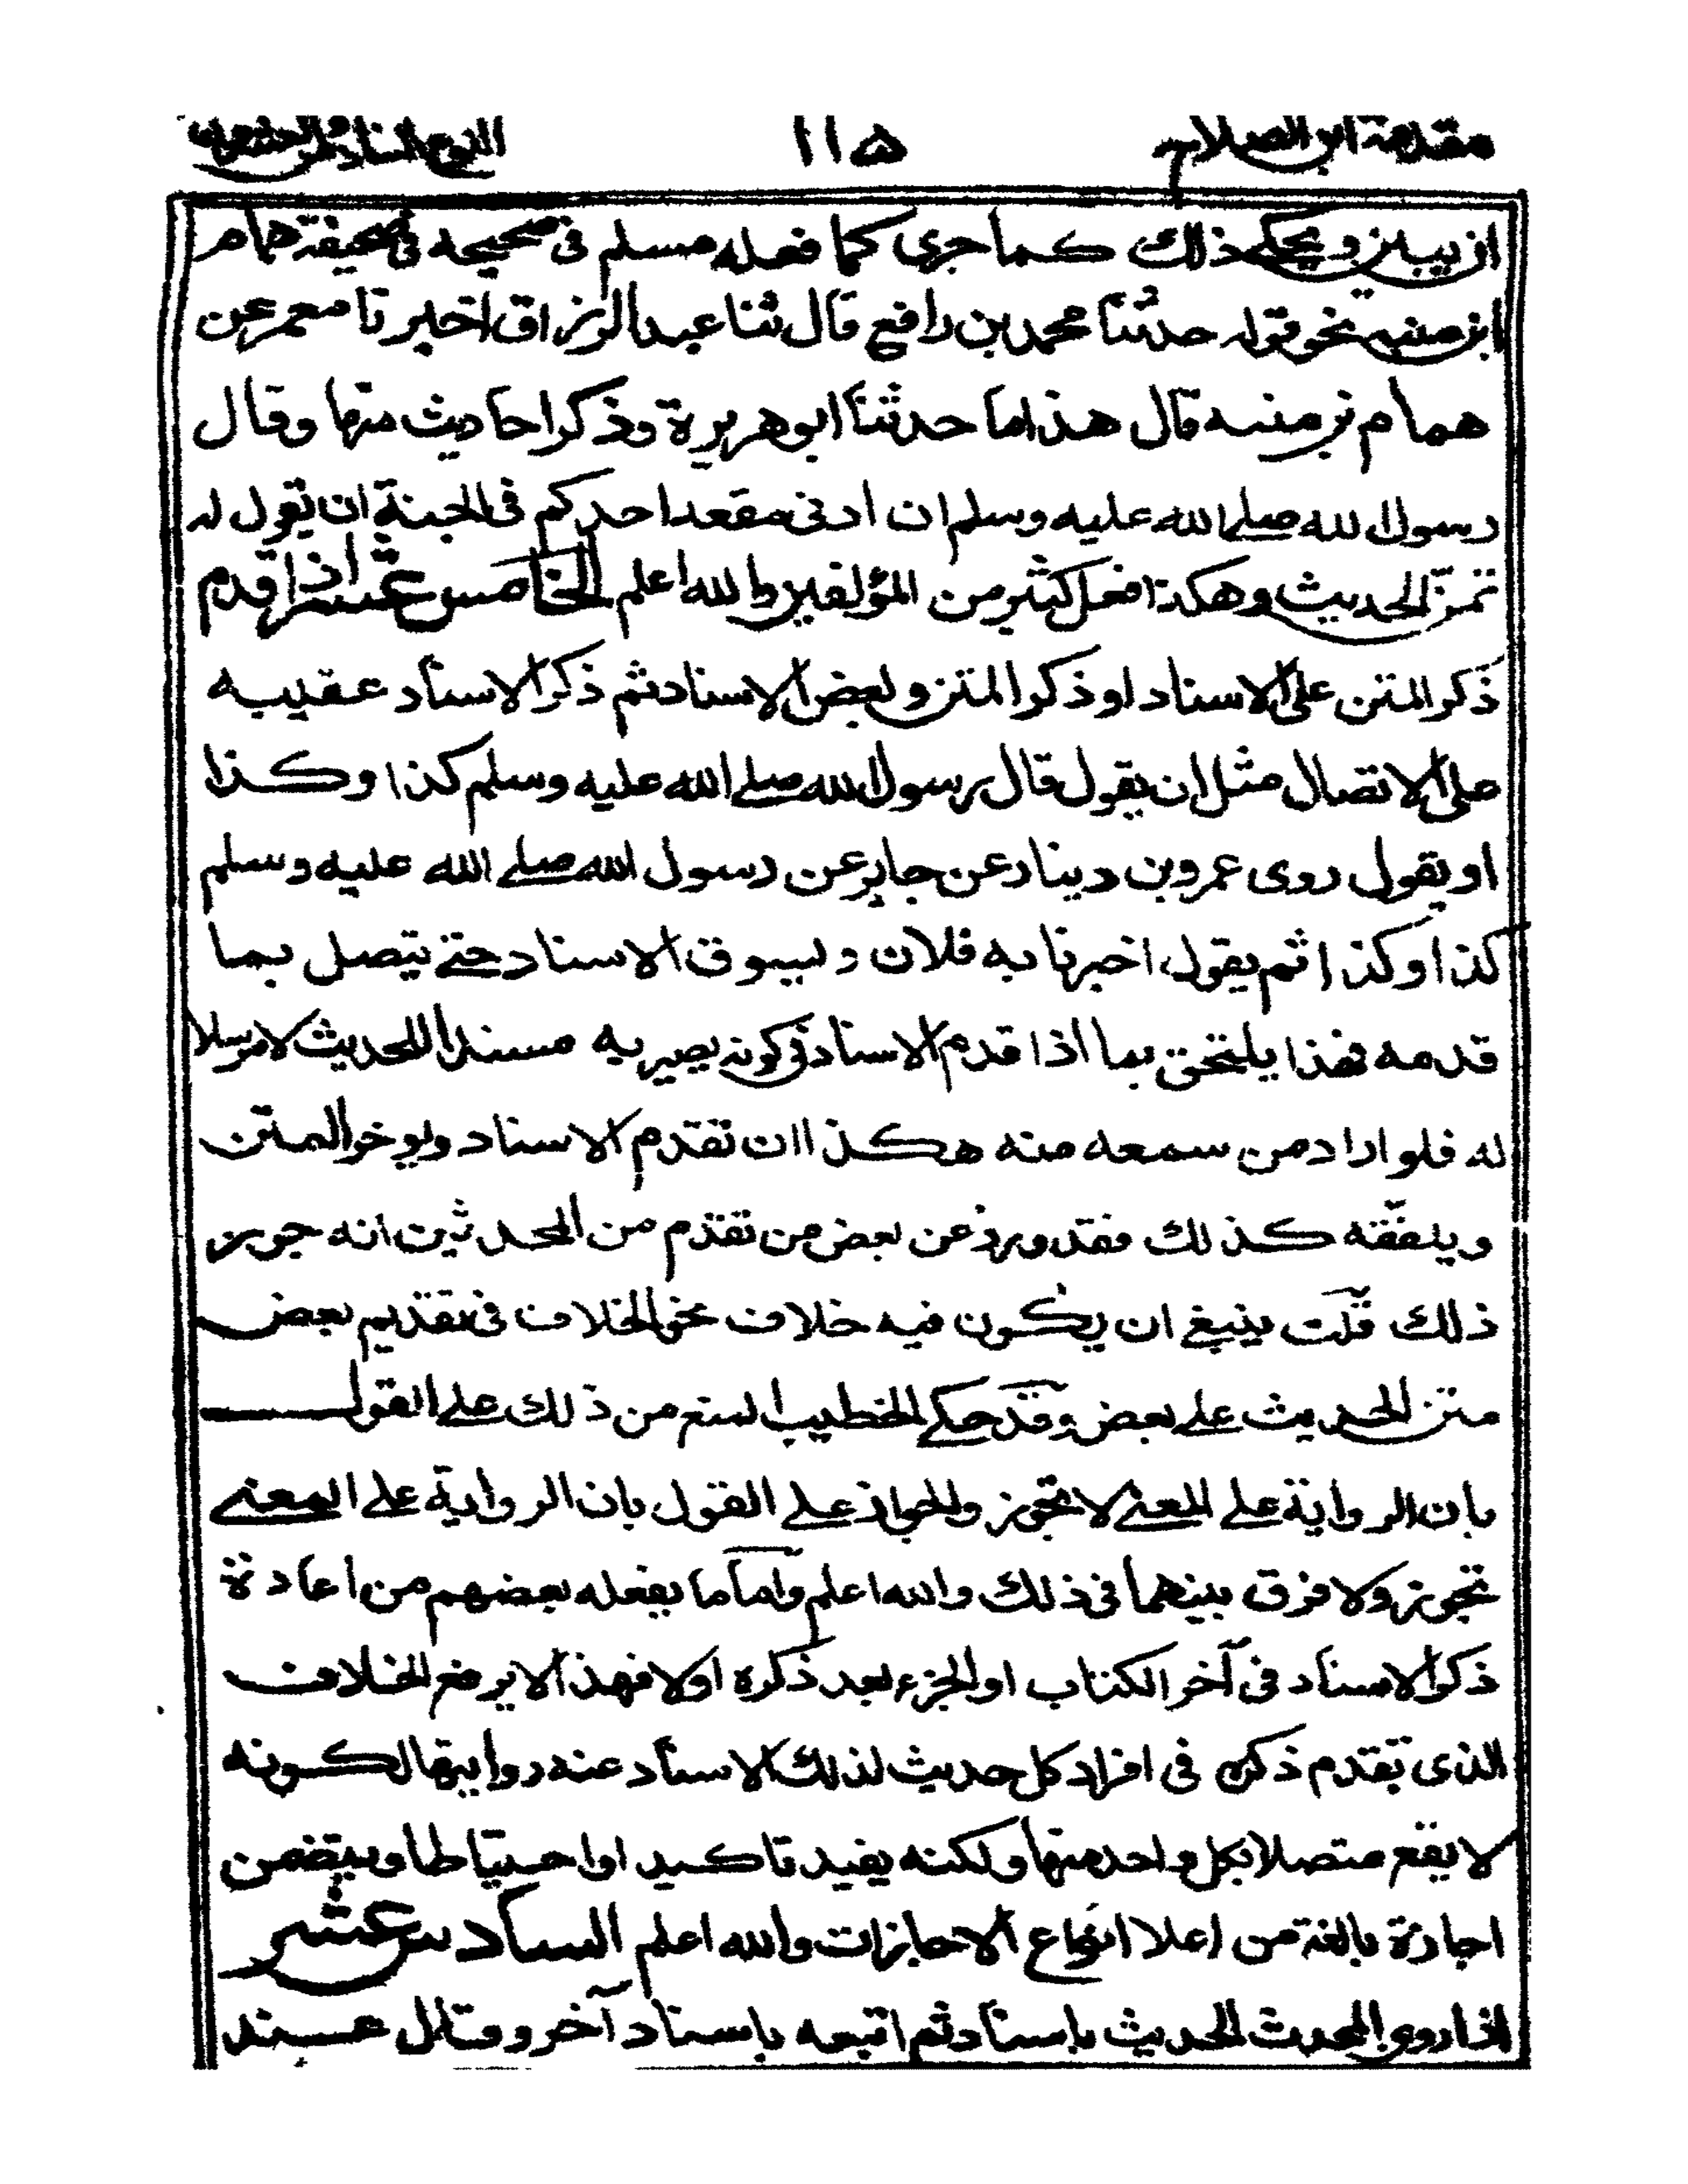 مقدمة ابن الصلاح ١١٥ النوع السادس والعشرون
ان يبين ويحكى ذلك كما جرى كما فعله مسلم فى صحيحه فى صحيفة همام
ابن منبه نحو قوله حدثنا محمد بن رافع قال ثنا عبد الرزاق اخبرنا معمر عن
همام بن منبه قال هذا ما حدثنا ابو هريرة وذكر احاديث منها وقال
رسول الله صلى الله عليه وسلم ان ادنى مقعد احدكم فى الجنة ان يقول له
تمنّ الحديث وهكذا فعل كثير من المؤلفين والله اعلم الخامس عشر اذا قدم
ذكر المتن على الاسناد او ذكر المتن وبعض الاسناد ثم ذكر الاسناد عقيبه
على الاتصال مثل ان يقول قال رسول الله صلى الله عليه وسلم كذا وكذا
او يقول روى عمرو بن دينار عن جابر عن رسول الله صلى الله عليه وسلم
كذا وكذا ثم يقول اخبرنا به فلان ويسوق الاسناد حتى يتصل بما
قدمه فهذا يلتحق بما اذا قدم الاسناد فى كونه يصير به مسندا للحديث لا مرسلا
له فلو اراد من سمعه منه هكذا ان تقدم الاسناد ويوخر المتن
ويلفقه كذلك فقد ورد عن بعض من تقدم من المحدثين انه جوز
ذلك قلت ينبغى ان يكون فيه خلاف نحو الخلاف فى تقديم بعض
متن الحديث على بعض وقد حكى الخطيب المنع من ذلك على القول
بان الرواية على المعنى لا تجوز والجواز على القول بان الرواية على المعنى
تجوز ولا فرق بينهما فى ذلك والله اعلم واما ما يفعله بعضهم من اعادة
ذكر الاسناد فى آخر الكتاب او الجزء بعد ذكره اولا فهذا لا يرفع الخلاف
الذى تقدم ذكره فى افراد كل حديث لذلك الاسناد عند روايتها لكونه
لا يقع متصلا بكل واحد منها ولكنه يفيد تاكيد او احتياطا ويتضمن
اجازة بالغة من اعلا انواع الاجازات والله اعلم السادس عشر
اذا روى المحدث الحديث باسناد ثم اتبعه باسناد آخر وقال عند